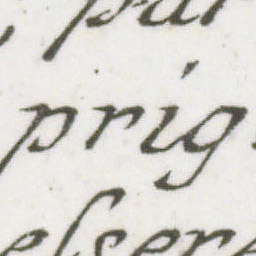 par
prig
elsere